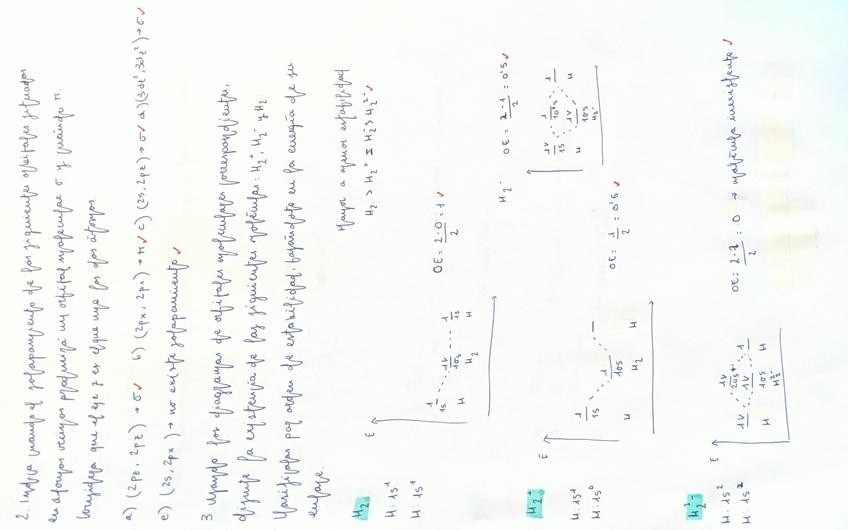 2. Indica cuando el solapamiento de los siguientes orbitales situados
en átomos vecinos producirá un orbital molecular σ y cuándo π.
Considera que el eje z es el que une los dos átomos.
a) (2pz, 2pz) → σ ✓ b) (2px, 2px) → π ✓ c) (2s, 2pz) → σ ✓ d) (3dz², 3dz²) → σ ✓
e) (2s, 2px) → no existe solapamiento ✓
3 Usando los diagramas de orbitales moleculares correspondientes,
la existencia de las siguientes moléculas: H2+, H2- y H2.
Clasifícalas por orden de estabilidad, basándote en la energía de su
enlace.
Mayor a menor estabilidad
H2 > H2+ = H2- > H2²- ✓
H2:
H: 1s1
H: 1s1
E
1s
1s
H
H2
H
OE = 2-0/2 = 1 ✓
H2+
H: 1s1
H: 1s0
E
1s
H
H2
H
OE = 1/2 = 0'5 ✓
H2-
OE = 2-1/2 = 0'5 ✓
1s
H
H2-
H
H2²-
H: 1s2
H: 1s2
E
H
H
OE = 2-2/2 = 0 → molécula inexistente ✓